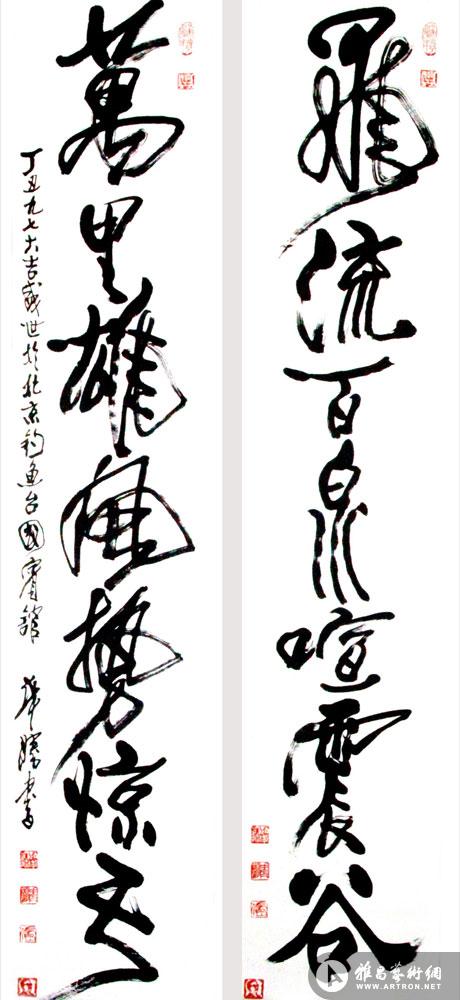 飛流百泉喧震谷
萬里雄風勢惊天
丁丑九七大吉盛世於北京釣魚台國賓館 勝書
雅昌藝術網
WWW.ARTRON.NET